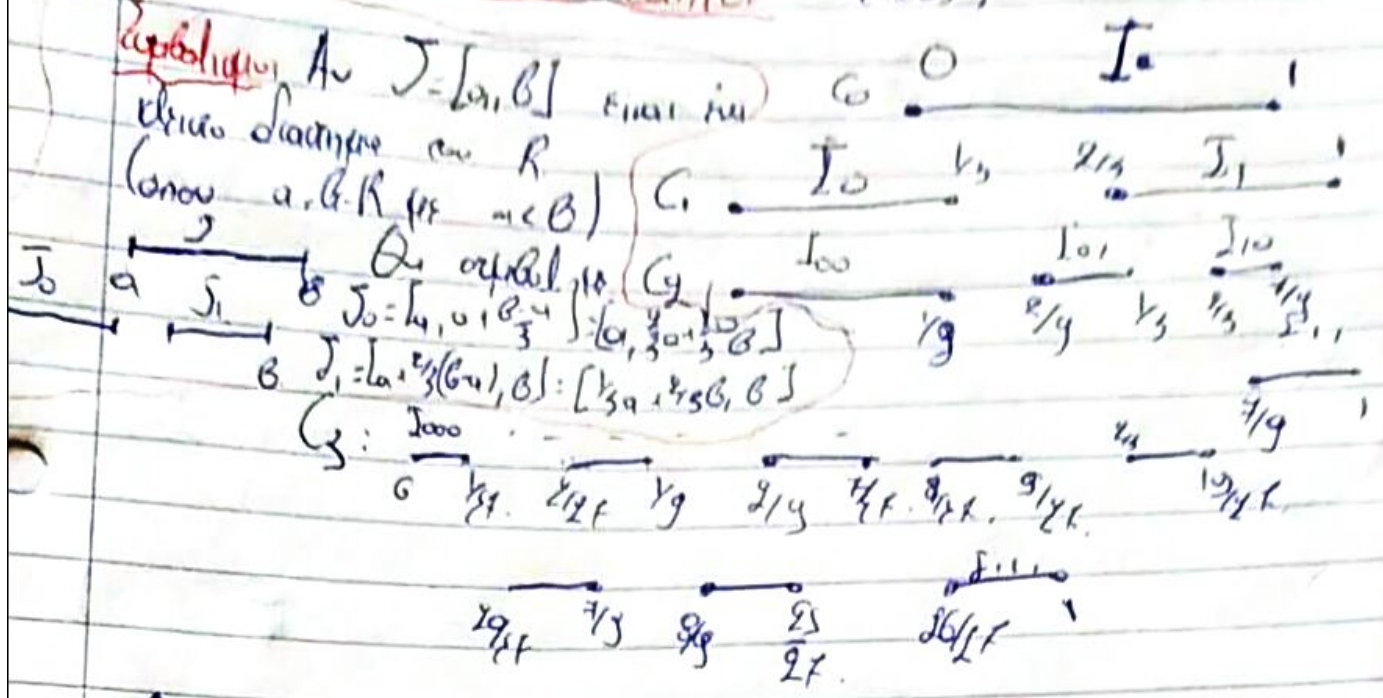 Συμβολισμοί Αν J=[a,B] είναι ένα
κλειστό διάστημα του R
(όπου a,B∈R με a<B)
J
a B
J0 J1
B
Θα συμβολ με
J0=[a, a+(B-a)/3]=[a, 2/3a+1/3B]
J1=[a+2/3(B-a),B]=[1/3a+2/3B, B]
C0 0 I 1
C1 I0 1/3 2/3 I1 1
C2 I00 I01 I10
1/9 2/9 1/3 2/3 7/9 I11
1
C3: I000 . - - -
0 1/27 2/27 1/9 2/9 7/27 8/27 9/27 2/3 19/27
20/27 7/9 8/9 25/27 26/27 I111 1